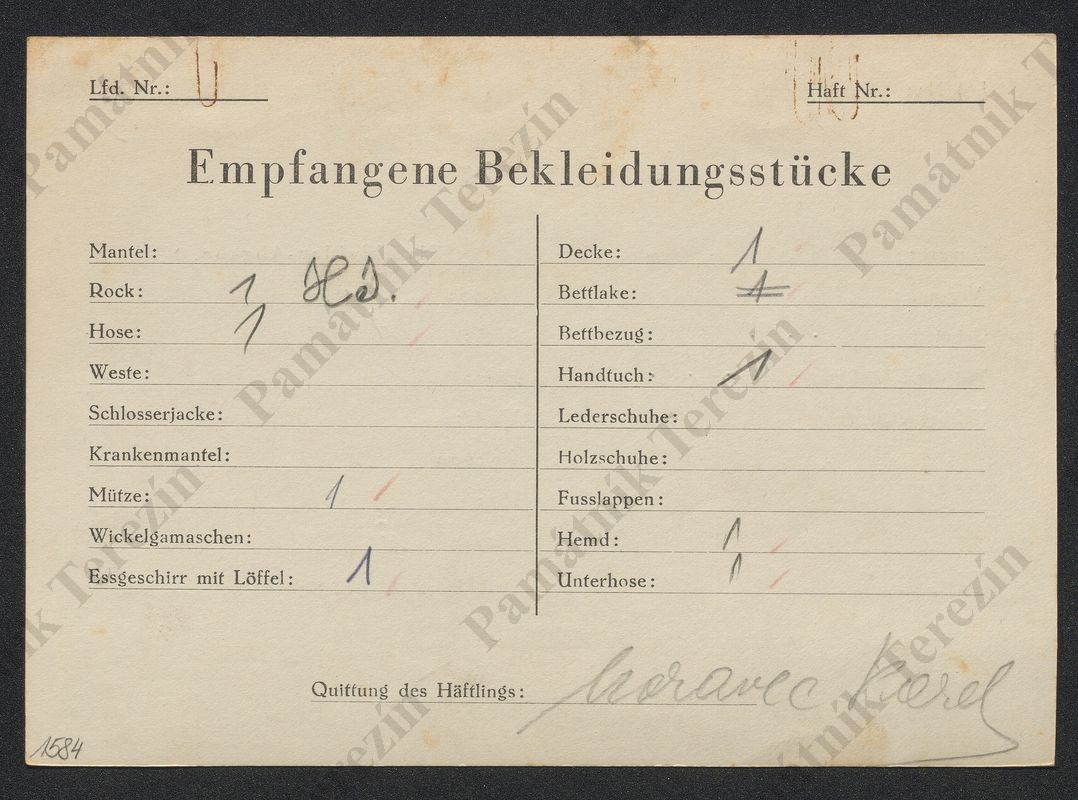 Lfd. Nr.:
Haft Nr.:
Empfangene Bekleidungsstücke
Mantel:
Rock: 1
Hose: 1
Weste:
Schlosserjacke:
Krankenmantel:
Mütze: 1
Wickelgamaschen:
Essgeschirr mit Löffel: 1
Decke: 1
Bettlake: 1
Bettbezug:
Handtuch: 1
Lederschuhe:
Holzschuhe:
Fusslappen:
Hemd: 1
Unterhose: 1
Quittung des Häftlings: Moravec Karel
1584
Památník Terezín